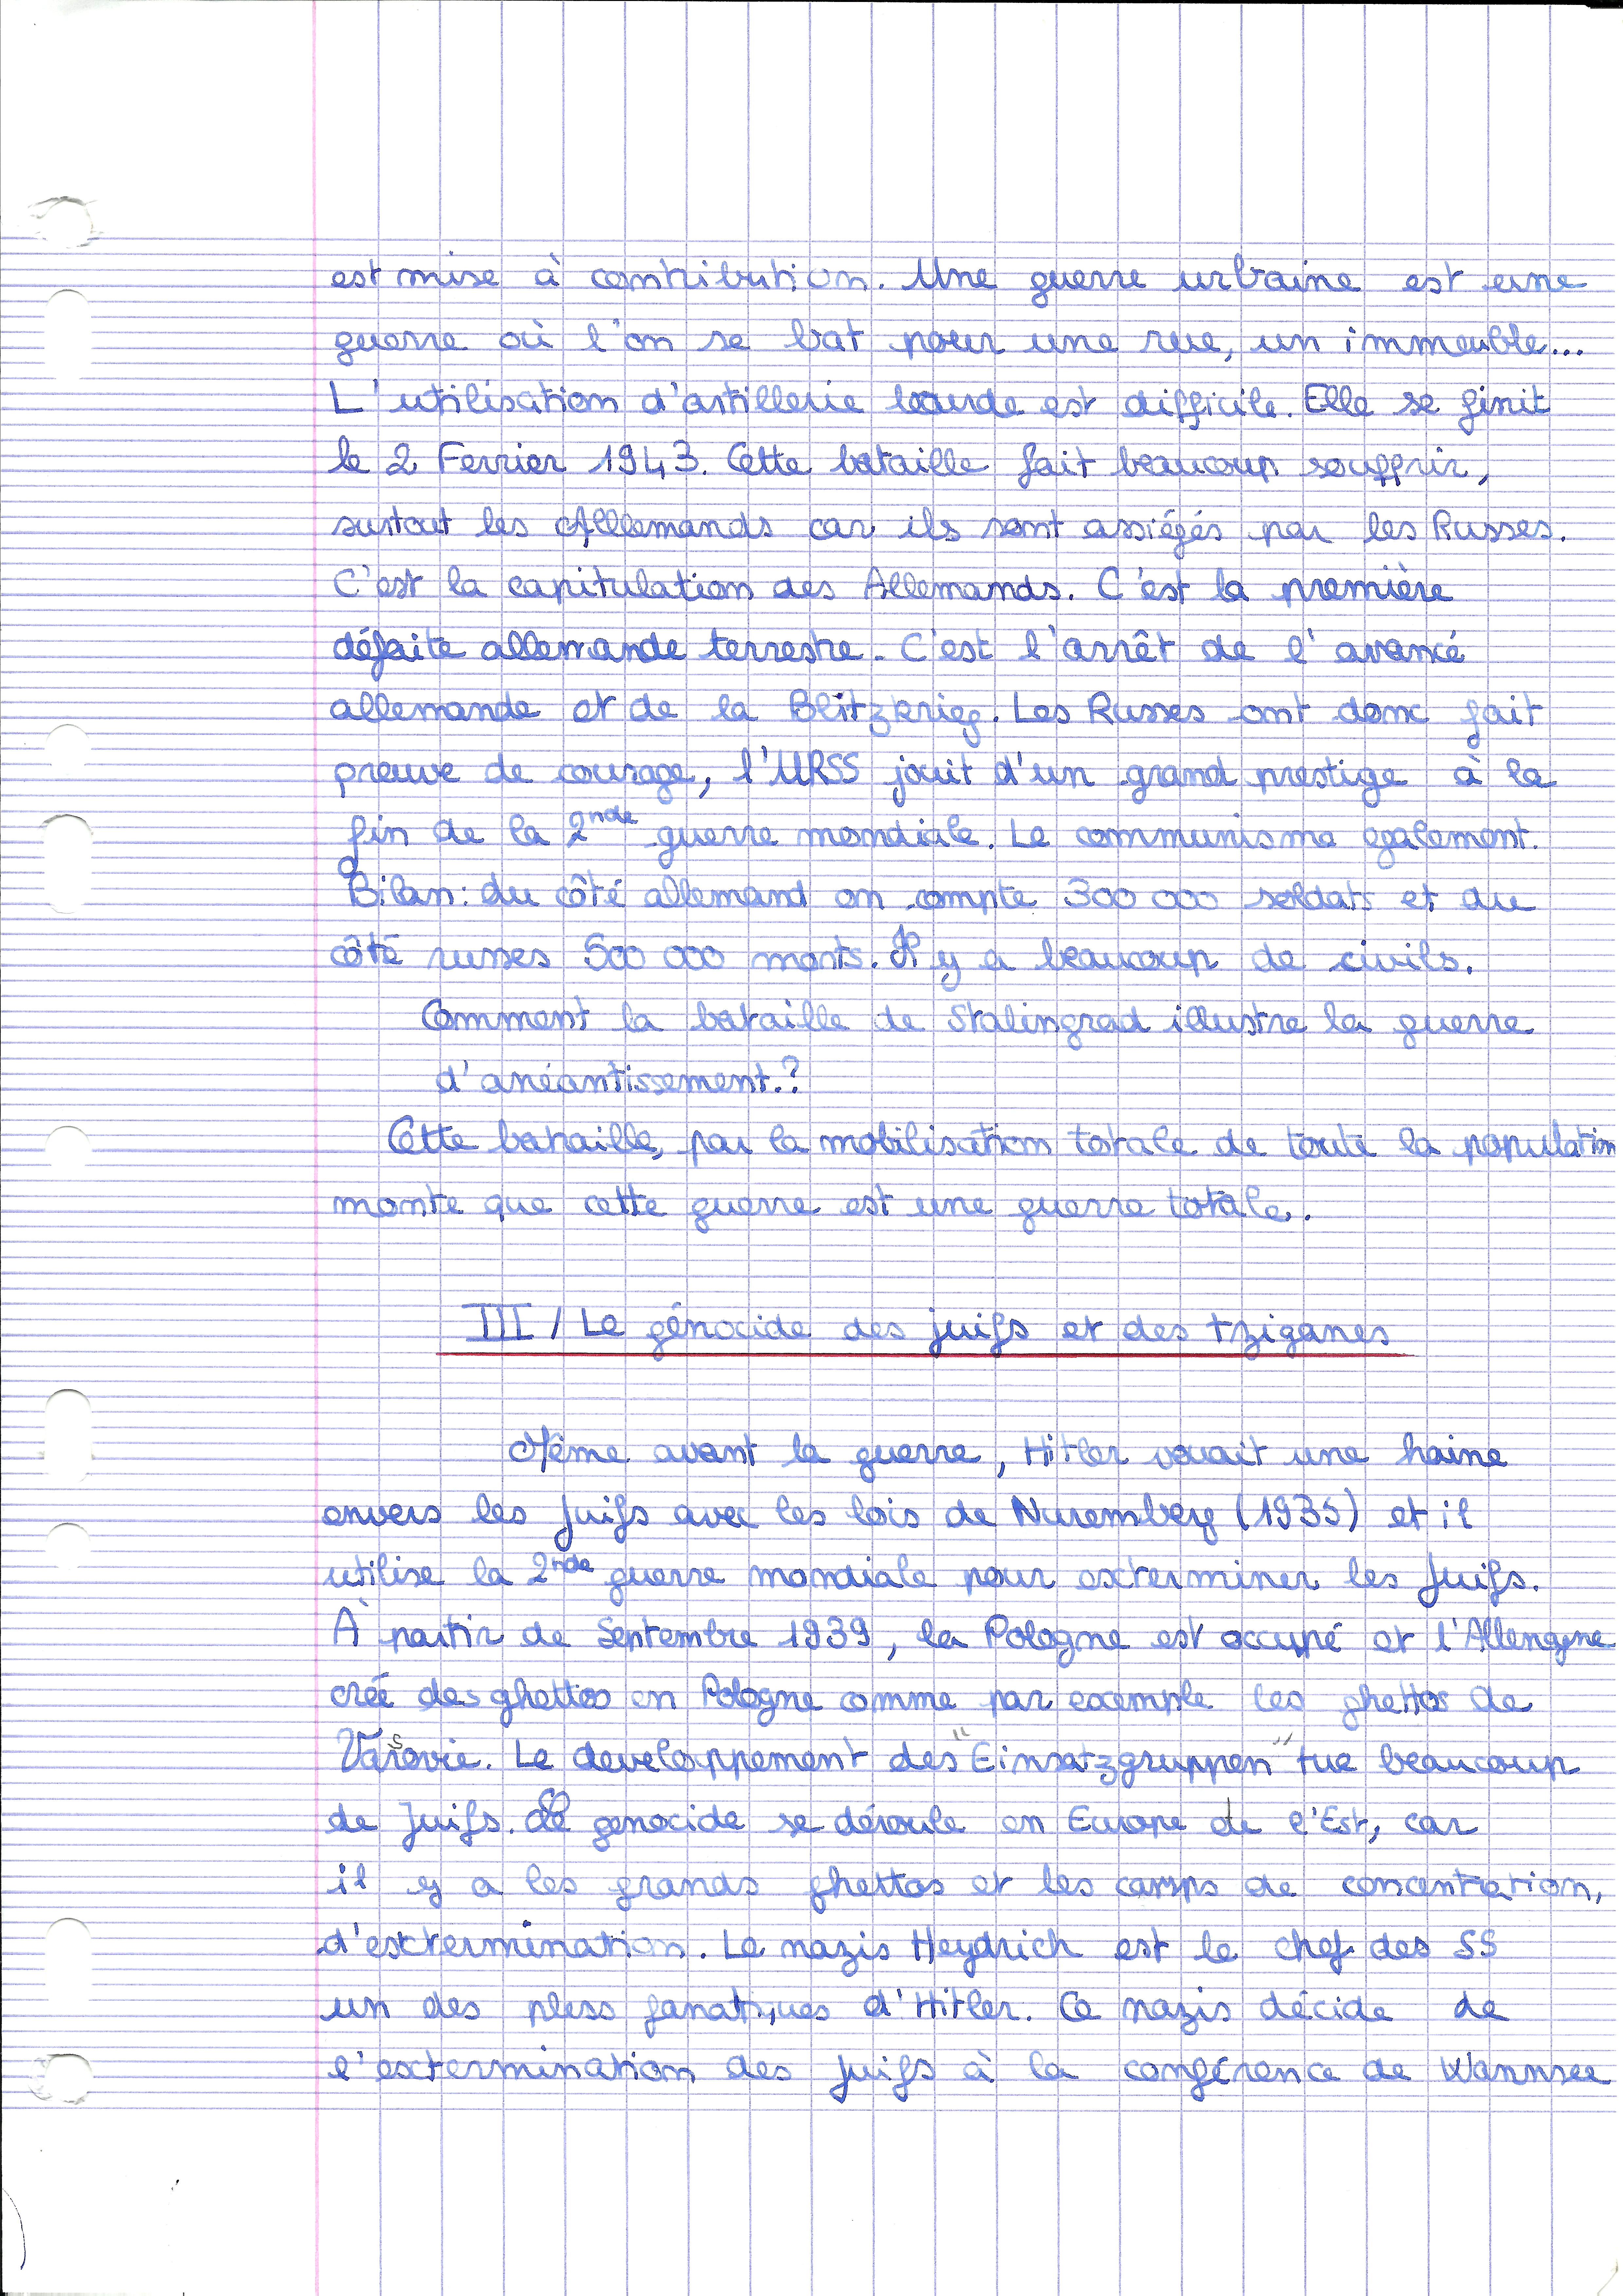 est mise à contribution. Une guerre urbaine est une
guerre où l'on se bat pour une rue, un immeuble...
L'utilisation d'artillerie lourde est difficile. Elle se finit
le 2 Fevrier 1943. Cette bataille fait beaucoup souffrir,
surtout les Allemands car ils sont assiégés par les Russes.
C'est la capitulation des Allemands. C'est la première
défaite allemande terrestre. C'est l'arrêt de l'avancé
allemande et de la Blitzkrieg. Les Russes ont donc fait
preuve de courage, l'URSS jouit d'un grand prestige à la
fin de la 2nde guerre mondiale. Le communisme egalement.
Bilan: du côté allemand on compte 300 000 soldats et du
côté russes 500 000 morts. Il y a beaucoup de civils.
Comment la bataille de Stalingrad illustre la guerre
d'anéantissement.?
Cette bataille, par la mobilisation totale de toute la population
montre que cette guerre est une guerre totale.
III / Le génocide des juifs et des tziganes
Même avant la guerre, Hitler vouait une haine
envers les Juifs avec les lois de Nuremberg (1935) et il
utilise la 2nde guerre mondiale pour exterminer les Juifs.
À partir de Septembre 1939, la Pologne est occupé et l'Allemgne
crée des ghettos en Pologne comme par exemple les ghettos de
Varsovie. Le developpement des "Einsatzgruppen" tue beaucoup
de Juifs. Ce genocide se déroule en Europe de l'Est, car
il y a les grands ghettos et les camps de concentration,
d'extermination. Le nazis Heydrich est le chef des SS
un des pluss fanatiques d'Hitler. Ce nazis décide de
l'extermination des juifs à la conférence de Wannsee